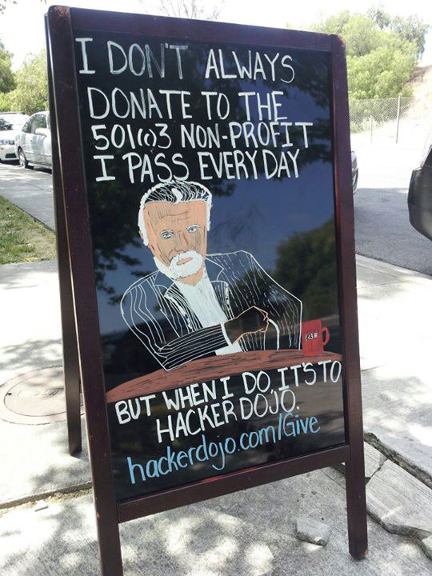 I DON'T ALWAYS
DONATE TO THE
501(c)3 NON-PROFIT
I PASS EVERY DAY
BUT WHEN I DO, IT'S TO
HACKER DOJO.
hackerdojo.com/Give